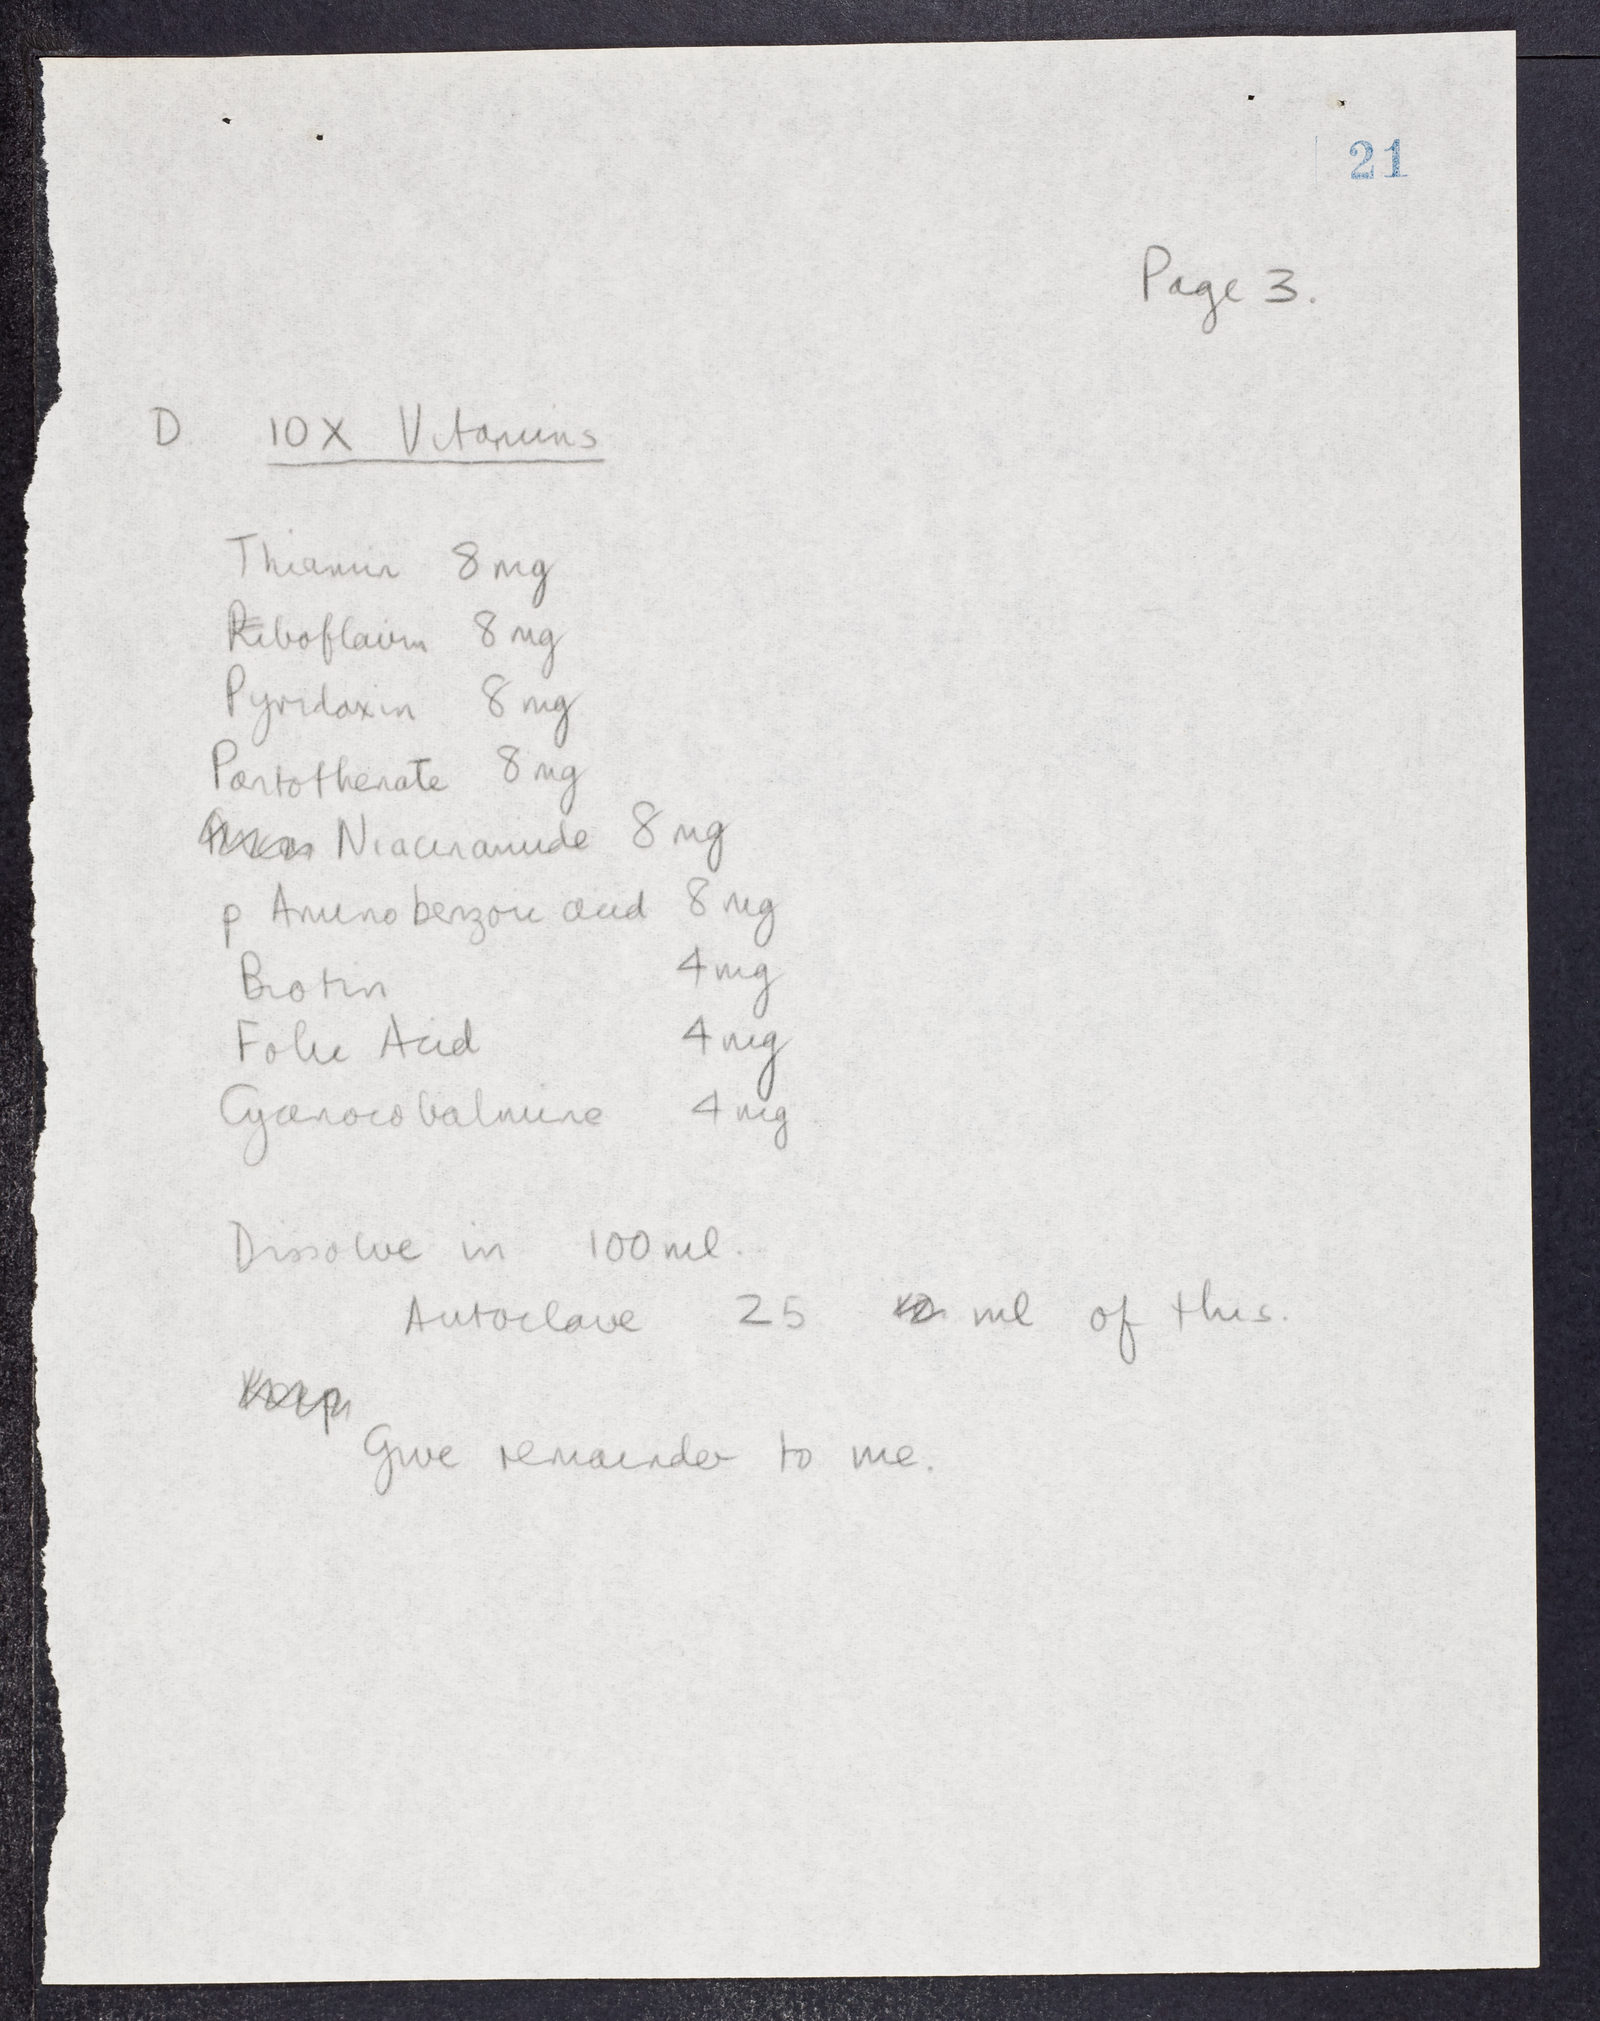 21
Page 3.
D 10X Vitamins
Thiamin 8mg
Riboflavin 8mg
Pyridoxin 8mg
Pantothenate 8mg
Niacinamide 8mg
p Aminobenzoic acid 8mg
Biotin 4mg
Folic Acid 4mg
Cyanocobalmine 4mg
Dissolve in 100ml.
Autoclave 25 ml of this.
Give remainder to me.